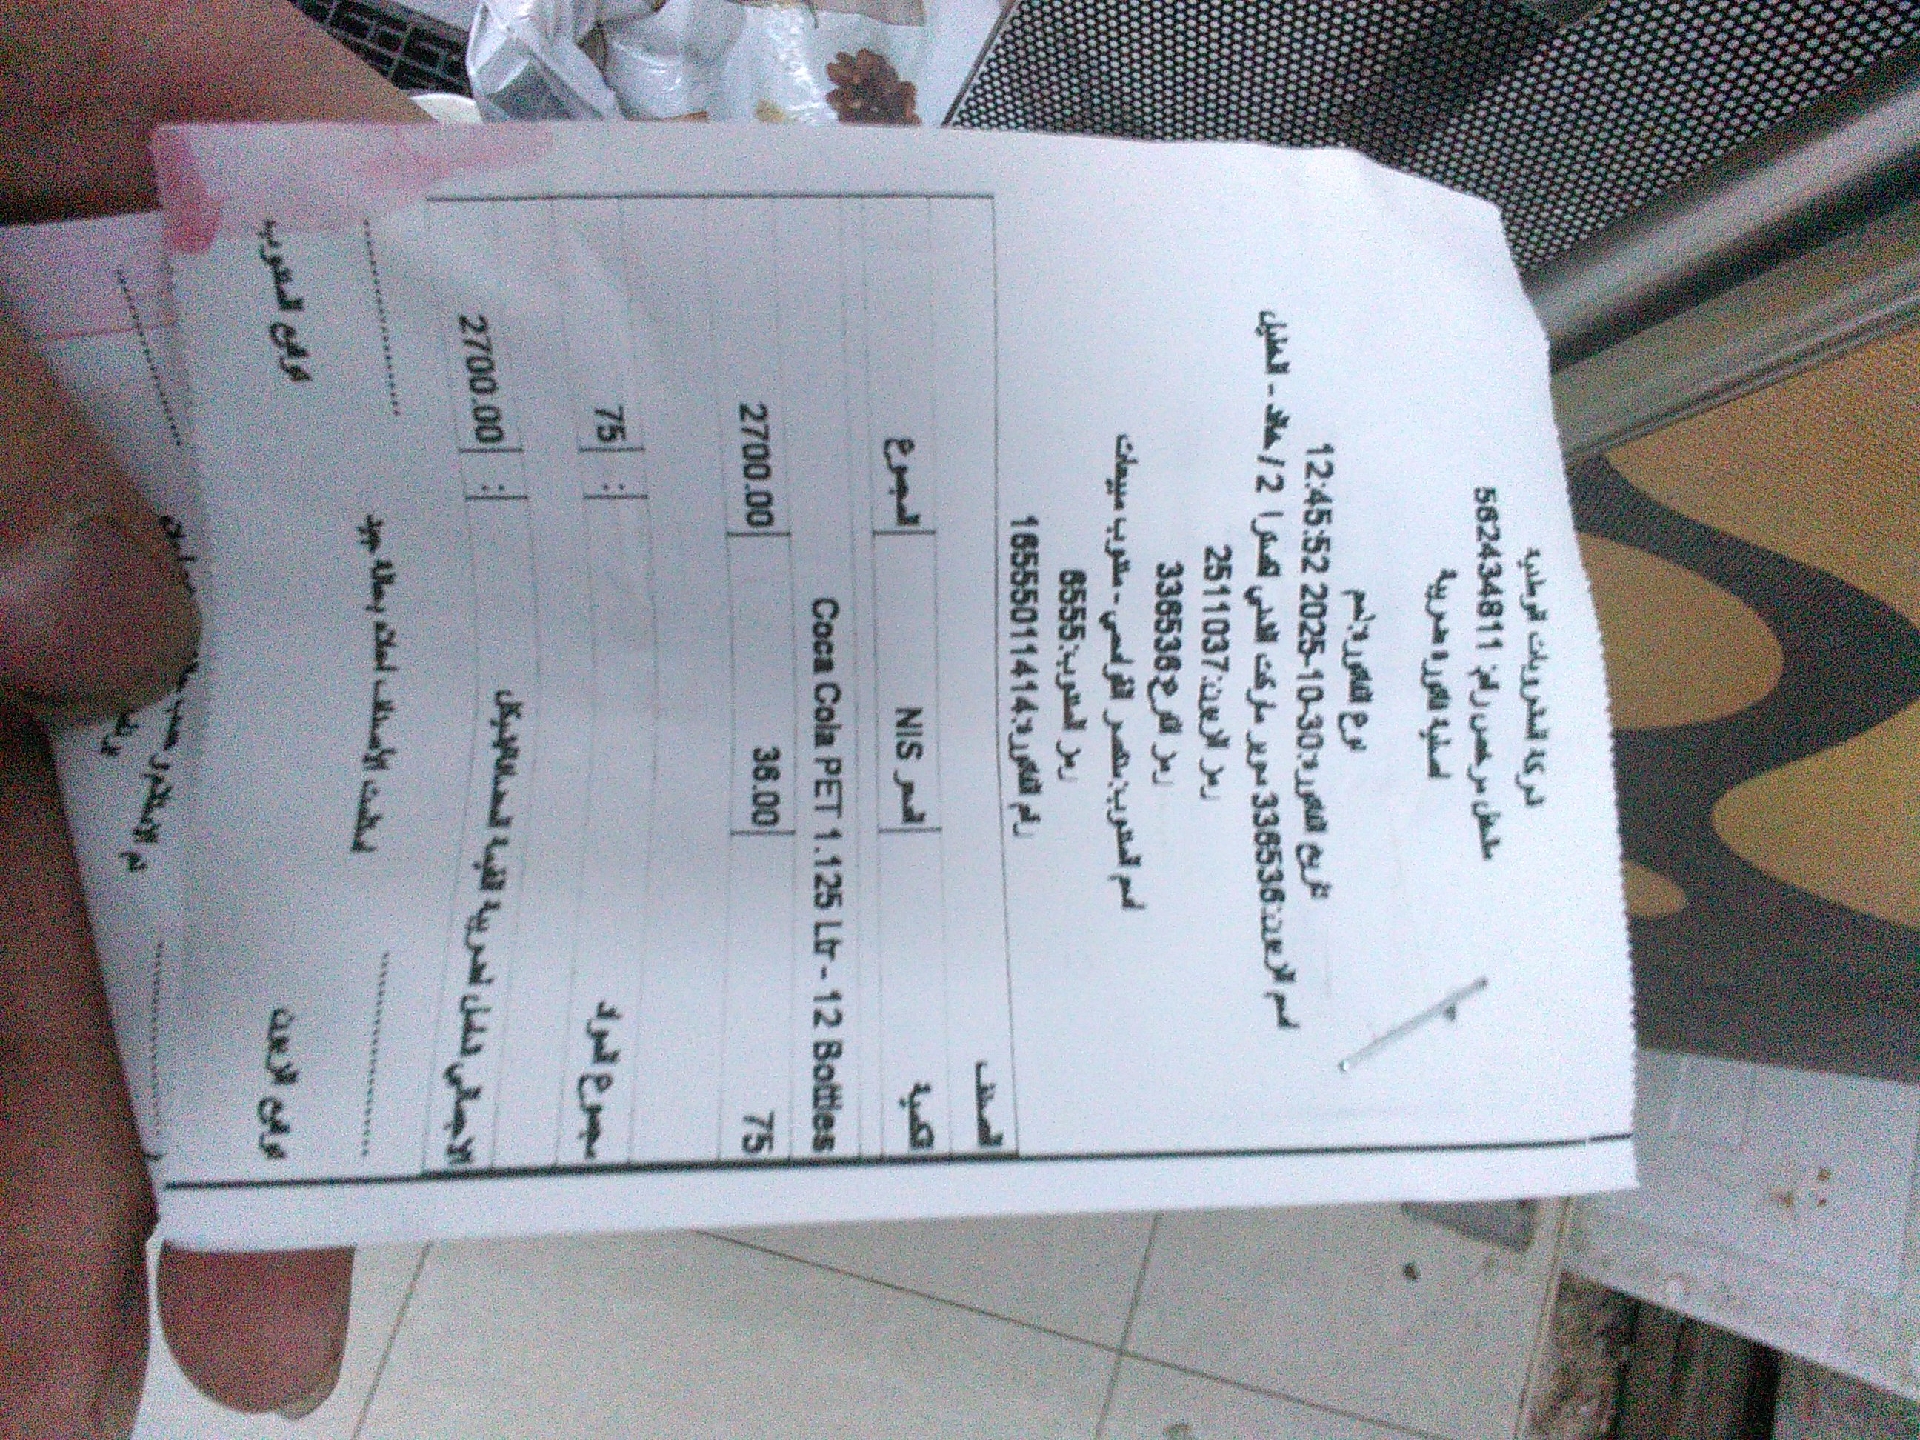 شركة المشروبات الوطنية
مشتغل مرخص رقم: 562434811
اصلية فاتورة ضريبية
نوع الفاتورة:اسم
تاريخ الفاتورة:30-10-2025 12:45:52
اسم الزبون:3365536 سوبر ماركت الغني لفكرا 2 / خالد - الخليل
رمز الزبون:25111037
رمز الفرع:3365536
اسم المندوب: منتصر القواسمي - مندوب مبيعات
رمز المندوب:6555
رقم الفاتورة:16555011414
الصنف
الكمية السعر NIS المجموع
Coca Cola PET 1.125 Ltr - 12 Bottles
75 36.00 2700.00
مجموع المواد : 75
الاجمالي شامل لضريبة القيمة المضافة/شيكل : 2700.00
استلمت الأصناف اعلاه بحالة جيدة
توقيع الزبون توقيع المندوب